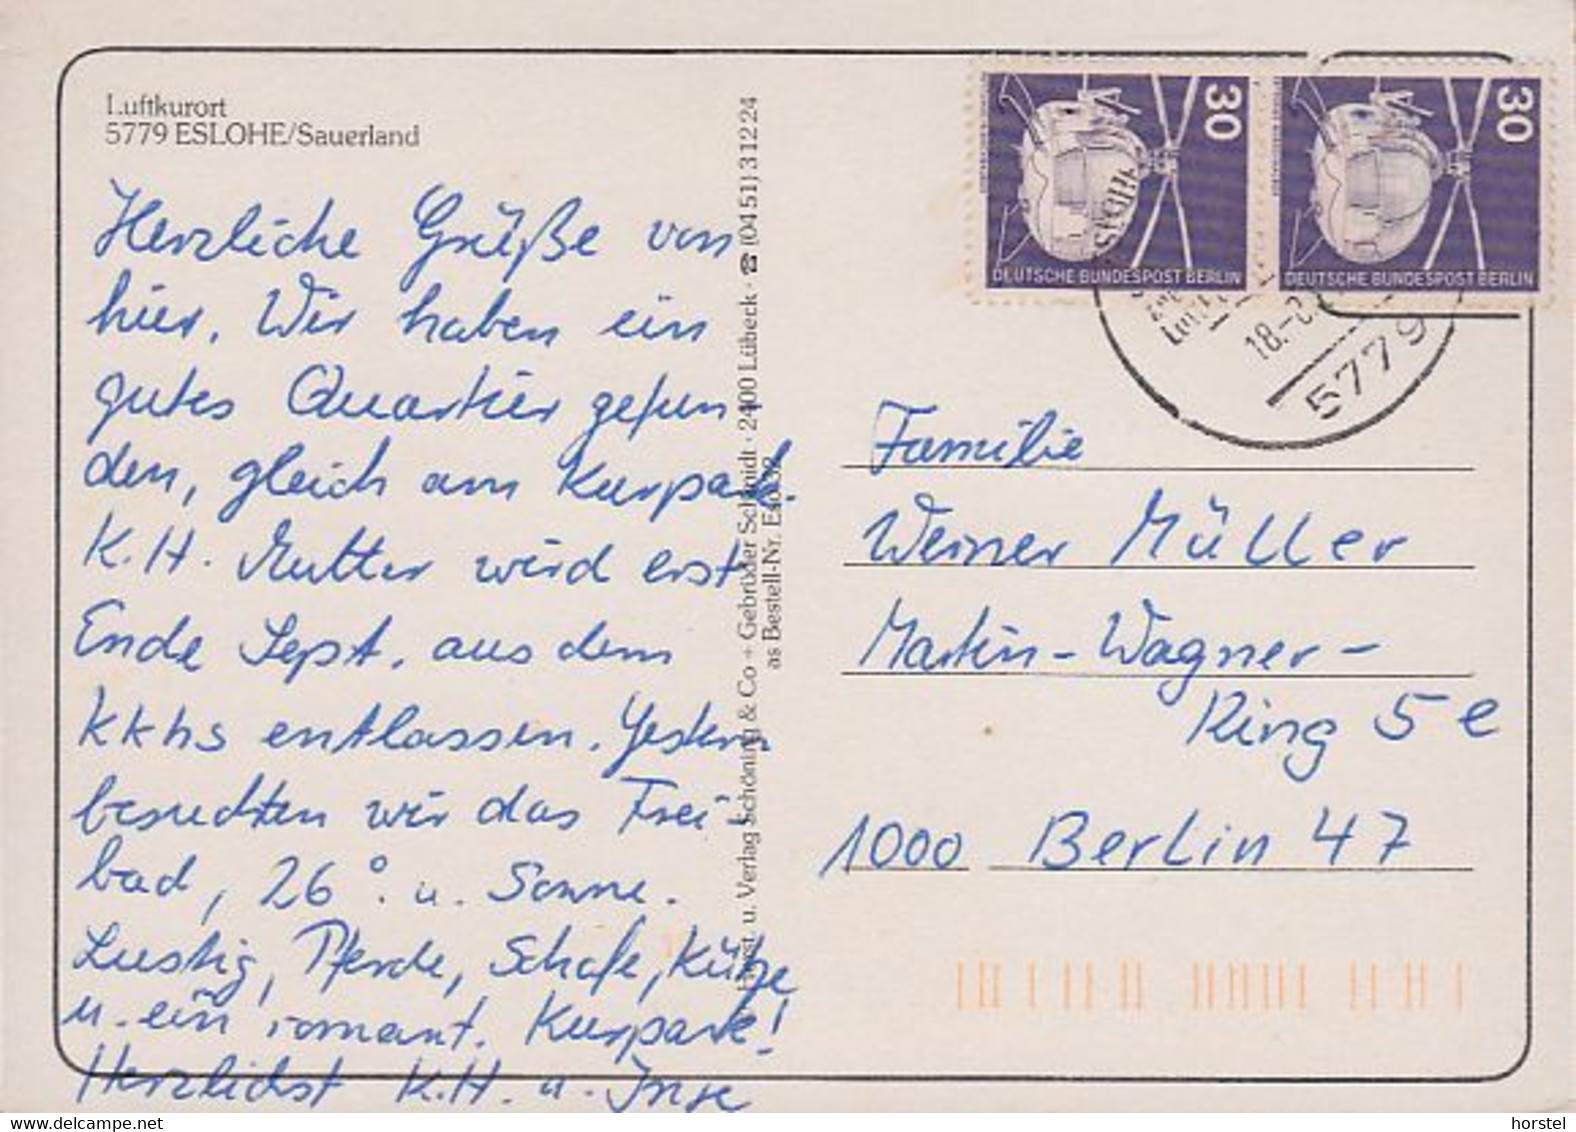 Luftkurort
5779 ESLOHE/Sauerland
Herzliche Grüße von
hier. Wir haben ein
gutes Quartier gefun
den, gleich am Kurpark.
K.H. Mutter wird erst
Ende Sept. aus dem
KKhs entlassen. Gestern
besuchten wir das Frei-
bad, 26°. u. Sonne.
Lustig, Pferde, Schafe, Kühe
u. ein romant. Kurpark!
Herzlichst K.H. u. Inge
u. Verlag Schöning & Co + Gebrüder Schmidt · 2400 Lübeck · ☎ (04 51) 3 12 24
as Bestell-Nr.
30
DEUTSCHE BUNDESPOST BERLIN
30
DEUTSCHE BUNDESPOST BERLIN
18.-
5779
Familie
Werner Müller
Martin-Wagner-
Ring 5e
1000 Berlin 47
horstel